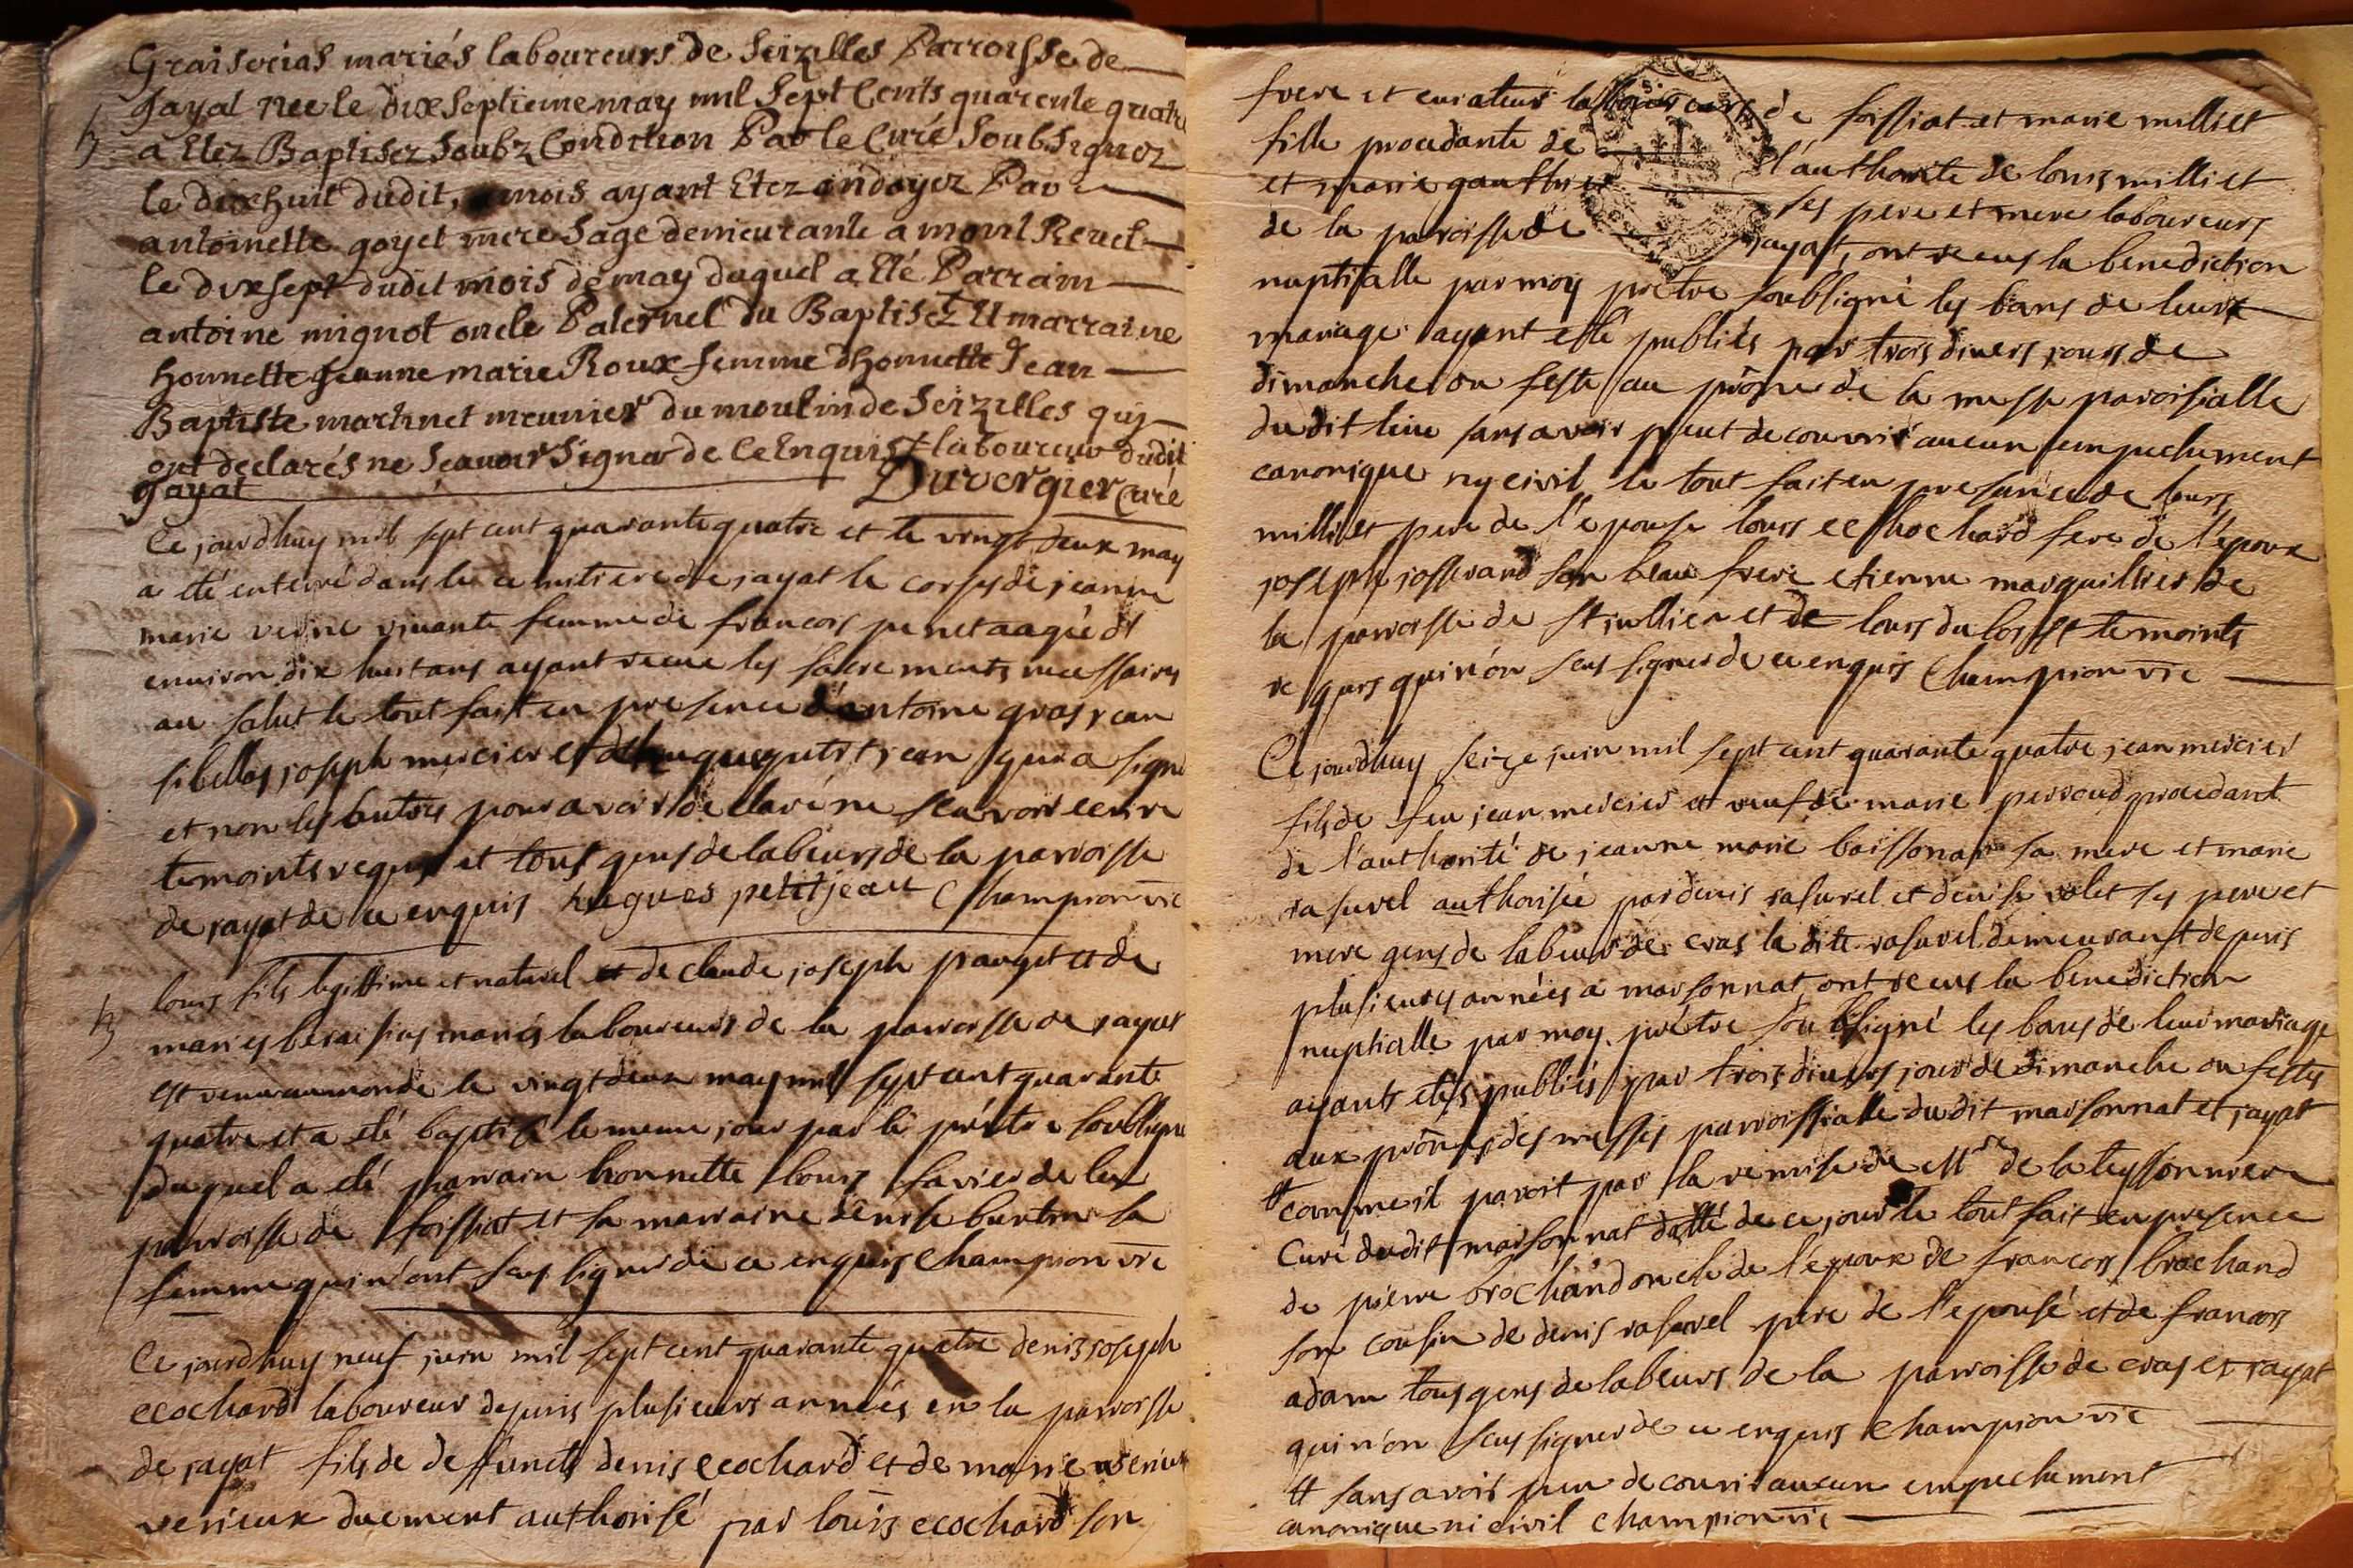 Graiserias mariés laboureurs de Seizilles Parroisse de
Jayat neele dixseptieme may mil Sept Cents quarente quatre
b
a Etez Baptisez Soubz Condition Par le Curé Soubsignez
le dixhuit dudit, mois ayant Etez ondoyez Par
antoinette goyet mere Sage demeurante a mont Revel
le dixsept dudit mois de may duquel a Eté Parrain
antoine mignot oncle Paternel du Baptisez Et marraine
honnette jeanne marie Roux femme dhonnette Jean
Baptiste martinet meunier du moulin de Seizilles quj
ont declarés ne Scauoir Signer de Ce Enquis + laboureur dudit
Jayat Duvergier Curé
Ce jourdhuy mil sept cent quarante quatre et le vingt deux may
a eté enterré dans le cemitiere de jayat le corps de jeanne
marie verne viuante femme de francois penet aagée d
enuiron dix huit ans ayant receue les sacrements necessaires
au salut le tout fait en presence d'antoine gros jean
sibellas joseph mercier et d'hugues petit jean qui a signé
et non les autres pour avoir declaré ne scavoir ecrire
temoints requis et tous gens de labeurs de la parroisse
de jayat de ce enquis hugues petitjean Champion vic
b
louis fils legittime et naturel et de claude joseph pauget et de
maries beraisias mariés laboureurs de la parroisse de jayat
est venu au monde le vingt deux may mil sept cent quarante
quatre et a eté baptisé le meme jour par le prêtre soubsigné
duquel a eté parrain honnette louis favier de la
parroisse de foissiat et sa marraine denise burtin sa
femme qui n'ont sceus signer de ce enquis Champion vic
Ce jourdhuy neuf juin mil sept cent quarante quatre denis joseph
ecochard laboureur depuis plusieurs années en la parroisse
de jayat fils de deffunct denis ecochard et de marie
verieux duement authorisé par louis ecochard son
frere et curateur laboureurs de foissiat et marie milliet
fille procedante de l'authorité de louis milliet
et marie gauthier ses pere et mere laboureurs
de la parroisse de jayat, ont receus la benediction
nuptialle par moy prêtre soubsigné les bans de leurs
mariage ayant esté publiés par trois divers jours de
dimanche ou feste au prône de la messe paroisialle
du dit lieu sans avoir peut decouvrir aucun empechement
canonique ny civil le tout fait en presence de louis
milliet pere de l'epouse louis ecochard frere de l'époux
joseph josserand son beau frere etienne marguillier de
la parroisse de St jullien et de louis du temoints
requis qui n'on sceus signer de ce enquis Champion vic
Ce jourdhuy seize juin mil sept cent quarante quatre jean mercier
fils de feu jean mercier et veuf de marie perroud procedant
de l'authorité de jeanne marie boissonat sa mere et marie
rasurel authorisée par denis rasurel et denise volet ses pere et
mere gens de labeur de cras la dite rasurel demeurant depuis
plusieurs années a marsonnat ont receus la benediction
nuptialle par moy prêtre soubsigné les bans de leur mariage
ayants etés publiés par trois divers jour de dimanche ou festes
aux prônes des messes parroissialle dudit marsonnat et jayat
# comme il paroit par la remise de Mre de la teyssonniere
Curé dudit marsonnat datté de ce jour le tout fait en presence
de pierre brochand oncle de l'époux de francois brochand
son cousin de denis rasurel pere de l'epouse et de francois
adam tous gens de labeurs de la parroisse de cras et jayat
qui n'on sceus signer de ce enquis Champion vic
# sans avoir peu decouvrir aucun empechement
canonique ni civil Champion vic